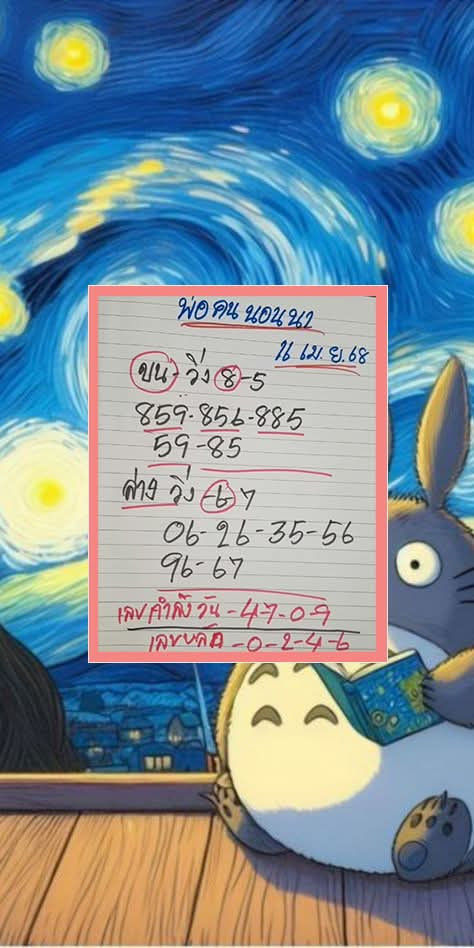 พ่อคนนอนนา
16 เม.ย.68
บน วิ่ง 8-5
859-856-885
59-85
ล่าง วิ่ง -6 7
06-26-35-56
96-67
เลขกำลังวัน -4-7-0-9
เลขปลด -0-2-4-6